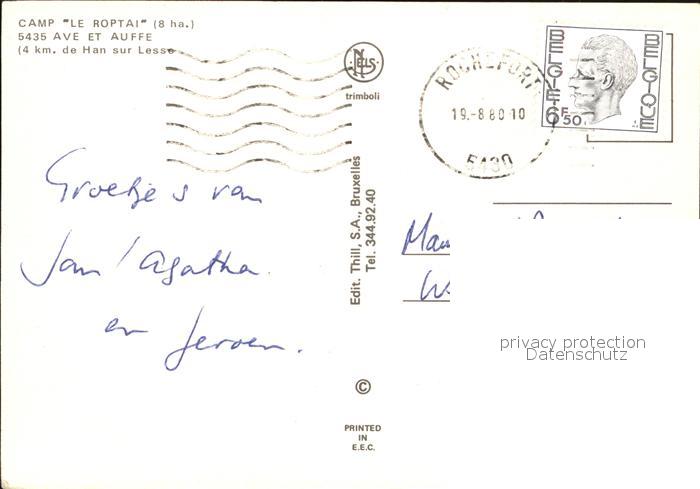 CAMP "LE ROPTAI" (8 ha.)
5435 AVE ET AUFFE
(4 km. de Han sur Lesse
NELS
trimboli
ROCHEFORT
19.-8.80 10
5430
BELGIE BELGIQUE
6F50
Groetjes van
Jan / Agatha
en Jeroen.
Edit. Thill, S.A., Bruxelles
Tel. 344.92.40
©
PRINTED
IN
E.E.C.
privacy protection
Datenschutz